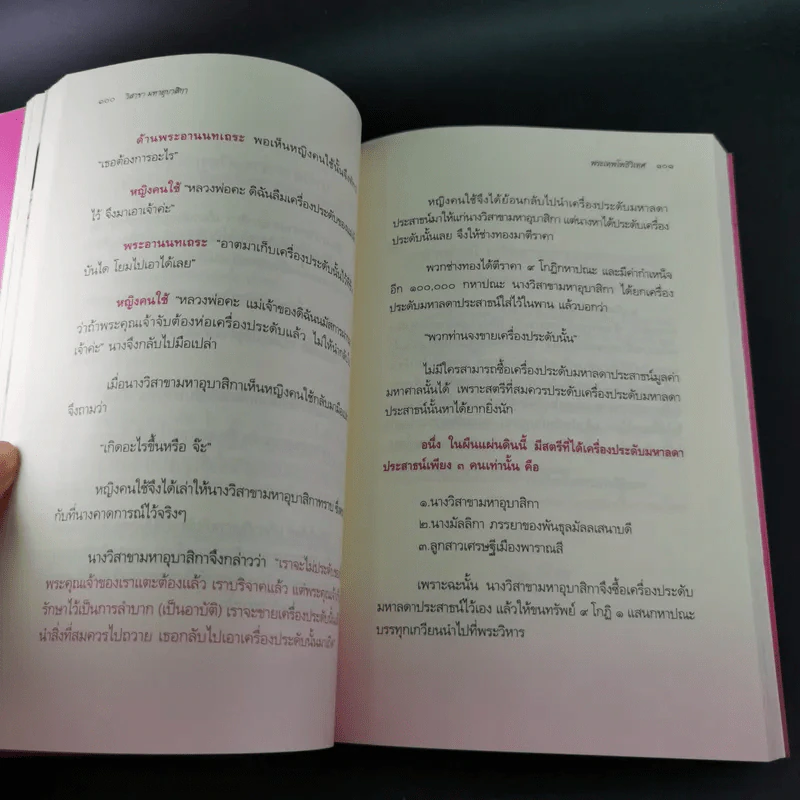 ๑๐๐ วิสาขา มหาอุบาสิกา
ด้านพระอานนทเถระ พอเห็นหญิงคนใช้นั้น
“เธอต้องการอะไร”
หญิงคนใช้ “หลวงพ่อคะ ดิฉันลืมเครื่องประดับ
ไว้ จึงมาเอาเจ้าค่ะ”
พระอานนทเถระ “อาตมาเก็บเครื่องประดับนั้นไว้
บันได โยมไปเอาได้เลย”
หญิงคนใช้ “หลวงพ่อคะ แม่เจ้าของดิฉันนมัสการ
ว่าถ้าพระคุณเจ้าจับต้องห่อเครื่องประดับแล้ว ไม่ให้นำกลับ
เจ้าค่ะ” นางจึงกลับไปมือเปล่า
เมื่อนางวิสาขามหาอุบาสิกาเห็นหญิงคนใช้กลับมามือ
จึงถามว่า
“เกิดอะไรขึ้นหรือ จ๊ะ”
หญิงคนใช้จึงได้เล่าให้นางวิสาขามหาอุบาสิกาทราบ
กับที่นางคาดการณ์ไว้จริงๆ
นางวิสาขามหาอุบาสิกาจึงกล่าวว่า “เราจะไม่ประดับ
พระคุณเจ้าของเราแตะต้องแล้ว เราบริจาคแล้ว แต่พระคุณเจ้า
รักษาไว้เป็นการลำบาก (เป็นอาบัติ) เราจะขายเครื่องประดับนั้น
นำสิ่งที่สมควรไปถวาย เธอกลับไปเอาเครื่องประดับนั้นมาเถิด”
พระเทพโพธิวิเทศ ๑๐๑
หญิงคนใช้จึงได้ย้อนกลับไปนำเครื่องประดับมหาลดา
ประสาธน์มาให้แก่นางวิสาขามหาอุบาสิกา แต่นางหาได้ประดับเครื่อง
ประดับนั้นเลย จึงให้ช่างทองมาตีราคา
พวกช่างทองได้ตีราคา ๙ โกฏิกหาปณะ และมีค่ากำเหน็จ
อีก ๑๐๐,๐๐๐ กหาปณะ นางวิสาขามหาอุบาสิกา ได้ยกเครื่อง
ประดับมหาลดาประสาธน์ใส่ไว้ในพาน แล้วบอกว่า
“พวกท่านจงขายเครื่องประดับนั้น”
ไม่มีใครสามารถซื้อเครื่องประดับมหาลดาประสาธน์มูลค่า
มหาศาลนั้นได้ เพราะสตรีที่สมควรประดับเครื่องประดับมหาลดา
ประสาธน์นั้นหาได้ยากยิ่งนัก
อนึ่ง ในผืนแผ่นดินนี้ มีสตรีที่ได้เครื่องประดับมหาลดา
ประสาธน์เพียง ๓ คนเท่านั้น คือ
๑.นางวิสาขามหาอุบาสิกา
๒.นางมัลลิกา ภรรยาของพันธุลมัลลเสนาบดี
๓.ลูกสาวเศรษฐีเมืองพาราณสี
เพราะฉะนั้น นางวิสาขามหาอุบาสิกาจึงซื้อเครื่องประดับ
มหาลดาประสาธน์ไว้เอง แล้วให้ขนทรัพย์ ๙ โกฏิ ๑ แสนกหาปณะ
บรรทุกเกวียนนำไปที่พระวิหาร